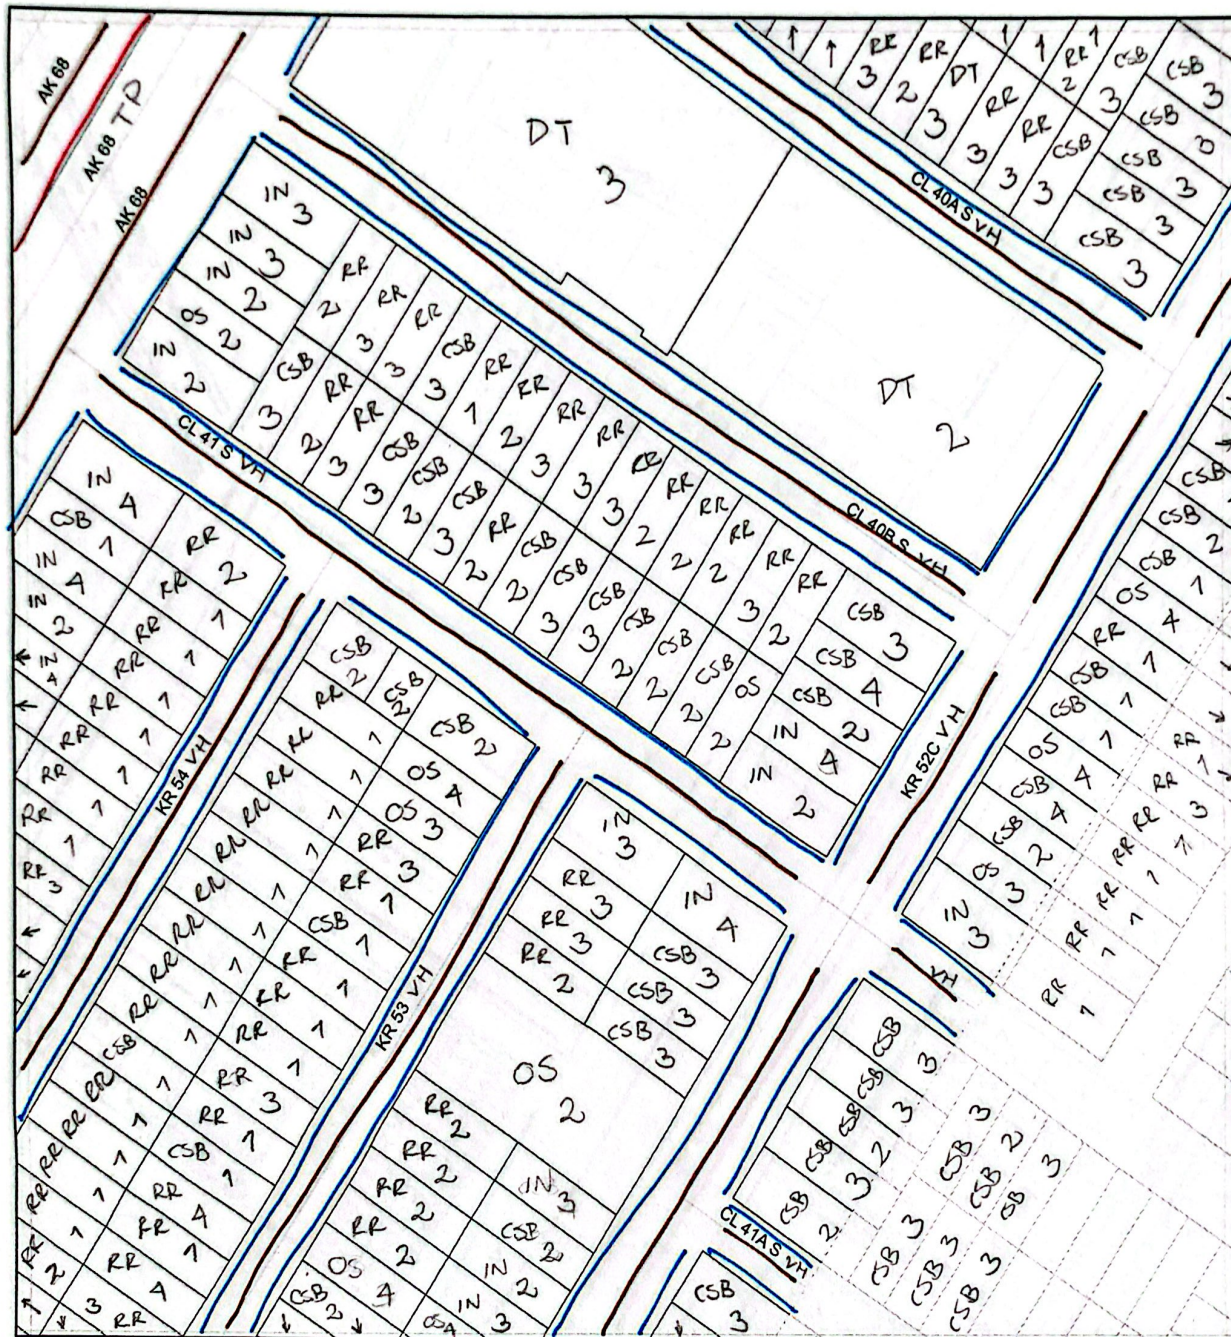 AK 68
AK 68 TP
AK 68
DT
3
DT
2
CL 40A S VH
CL 40B S VH
CL 41 S VH
KR 54 VH
KR 53 VH
KR 52C VH
VH
CL 41A S VH
RR 3
RR 2
DT 3
RR 3
RR 3
RR 2
CSB 3
CSB 3
CSB 3
CSB
CSB 3
CSB 3
CSB 3
IN 3
IN 3
IN 2
OS 2
IN 2
RR 2
RR 3
RR 3
CSB 3
RR 1
RR 2
RR 3
RR 3
RR 3
RR 2
RR 2
RR 2
RR 3
RR 2
CSB 3
RR 2
RR 3
CSB 3
CSB 2
CSB 3
RR 2
CSB 2
CSB 3
CSB 3
CSB 2
CSB 2
CSB 2
OS 2
CSB 3
CSB 4
CSB 2
IN 4
IN 2
IN 4
CSB 1
IN 4
IN 2
IN 4
RR 2
RR 1
RR 1
RR 1
RR 1
RR 1
RR 1
RR 3
CSB 2
CSB 2
CSB 2
RR 1
OS 4
RR 1
OS 3
RR 1
RR 3
RR 1
RR 1
RR 1
CSB 1
RR 1
RR 1
RR 1
RR 1
RR 1
RR 1
CSB 1
RR 3
RR 1
RR 1
RR 1
CSB 1
RR 1
RR 4
RR 1
RR 2
RR 4
3 RR
IN 3
IN 4
RR 3
CSB 3
RR 3
CSB 3
RR 2
CSB 3
OS 2
RR 2
RR 2
IN 3
RR 2
CSB 2
RR 2
IN 2
OS 4
IN 3
CSB 2
OS 4
CSB
CSB 2
CSB 1
OS 4
RR 1
CSB 1
CSB 1
OS 4
CSB 4
CSB 2
OS 3
IN 3
RR 1
RR 3
RR 1
RR 1
RR 1
RR 1
RR 1
CSB 3
CSB 3
CSB 2
CSB 3
CSB 2
CSB 3
CSB 2
CSB 3
CSB 3
CSB 3
CSB 3
CSB 3